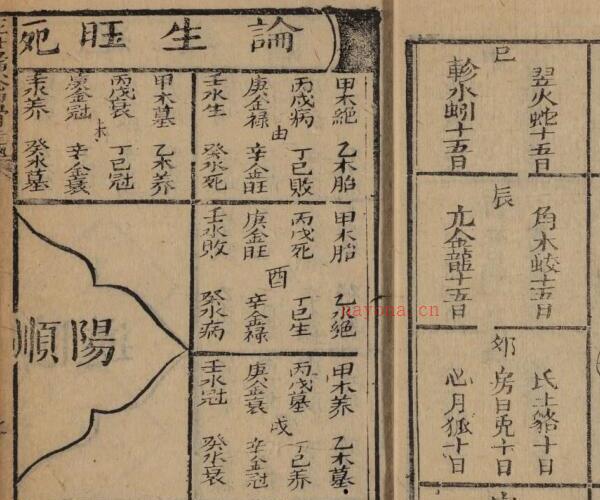 巳
翌火蛇十五日
軫水蚓十五日
辰
角木蛟十五日
亢金龍十五日
卯
氐土貉十日
房日兎十日
心月狐十日
論生旺死
申
甲木絕 乙木胎
丙戊病 丁巳敗
庚金禄 辛金旺
壬水生 癸水死
未
甲木墓 乙木养
丙戊衰 丁巳冠
庚金冠 辛金衰
壬水养 癸水墓
酉
甲木胎 乙木絕
丙戊死 丁巳生
庚金旺 辛金禄
壬水敗 癸水病
戌
甲木养 乙木墓
丙戊墓 丁巳养
庚金衰 辛金冠
壬水冠 癸水衰
陽順
nayona.cn